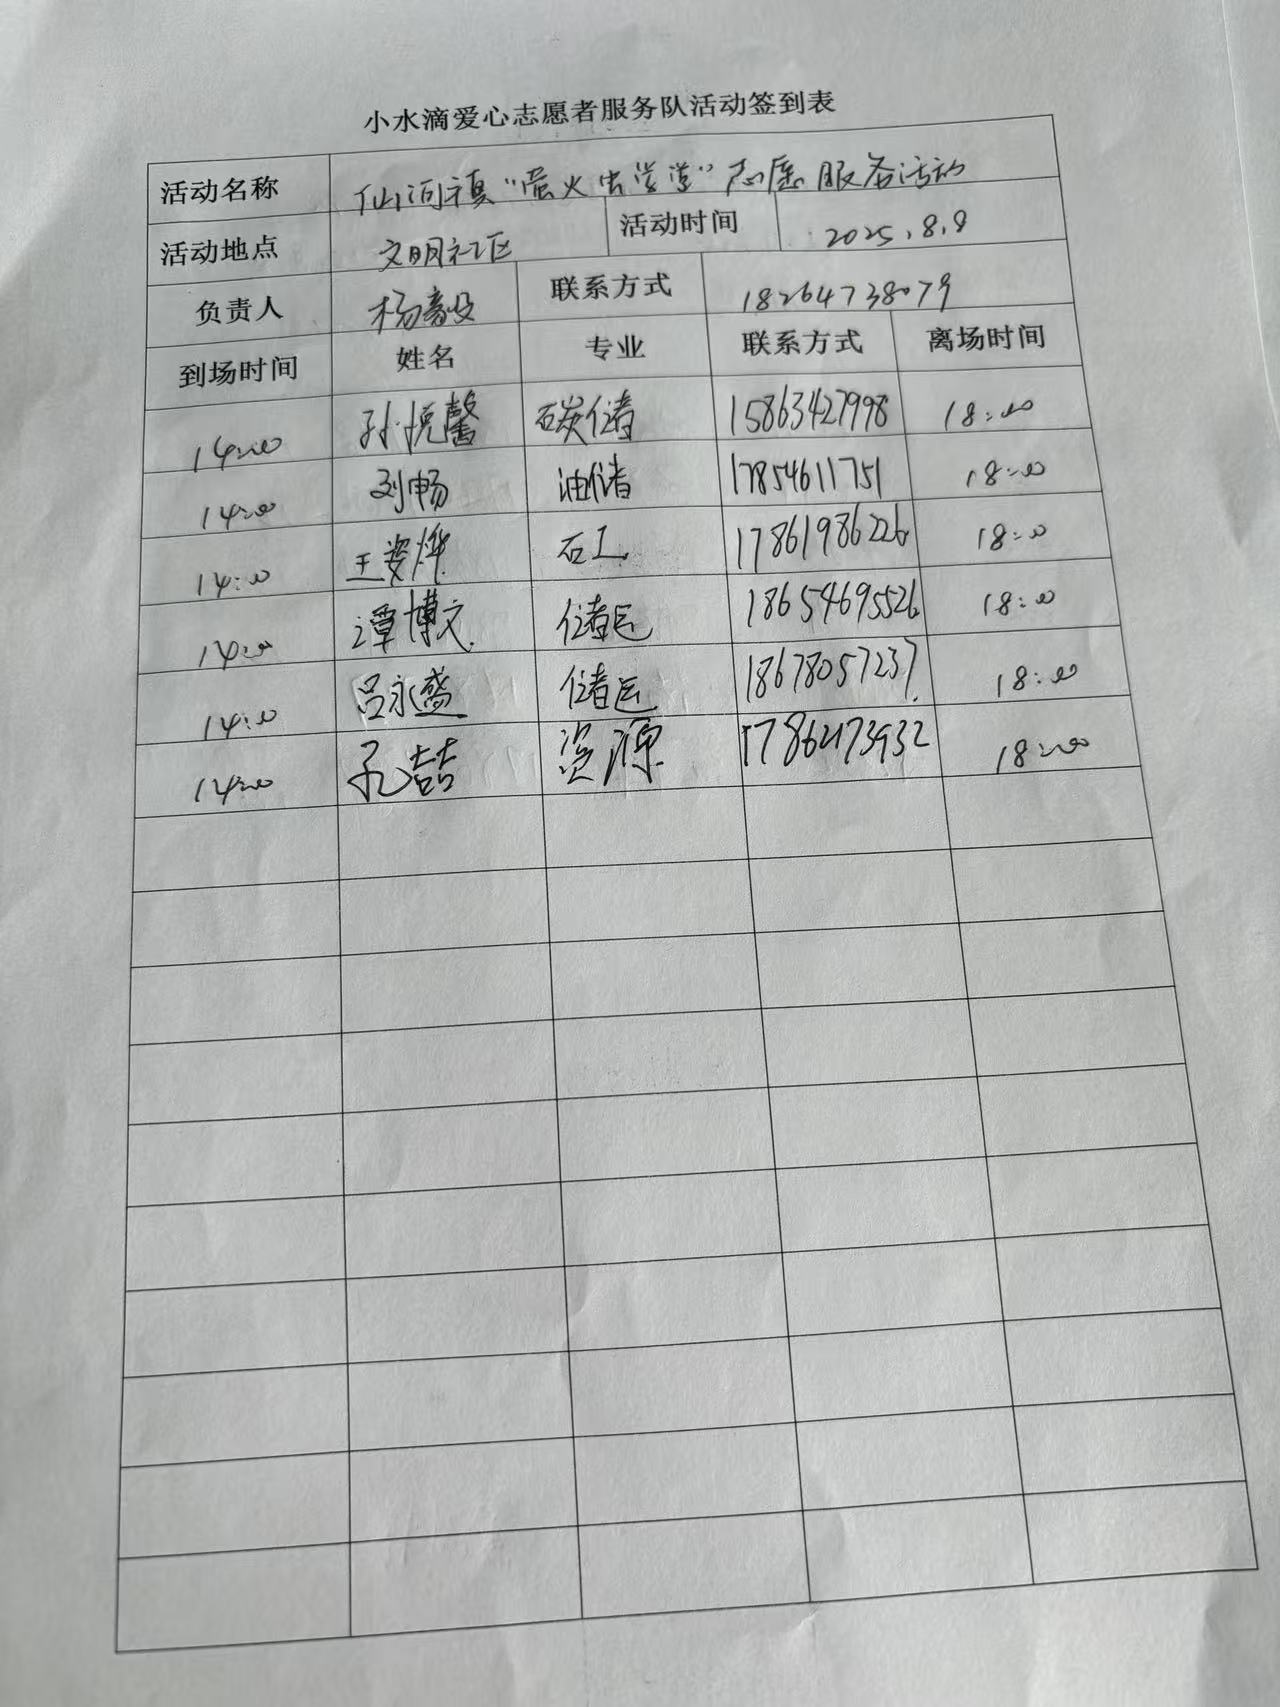 小水滴爱心志愿者服务队活动签到表
活动名称 仙河镇“萤火虫学堂”志愿服务活动
活动地点 文明社区 活动时间 2025.8.9
负责人 杨毅 联系方式 18264738079
到场时间 姓名 专业 联系方式 离场时间
14:00 孙悦馨 石炭储 15863427998 18:00
14:00 刘畅 油储 17854611751 18:00
14:00 王姿烨 石工 17861986226 18:00
14:00 谭博文 储运 18654695526 18:00
14:00 吕永盛 储运 18678057237 18:00
14:00 孔喆 资源 17862173932 18:00